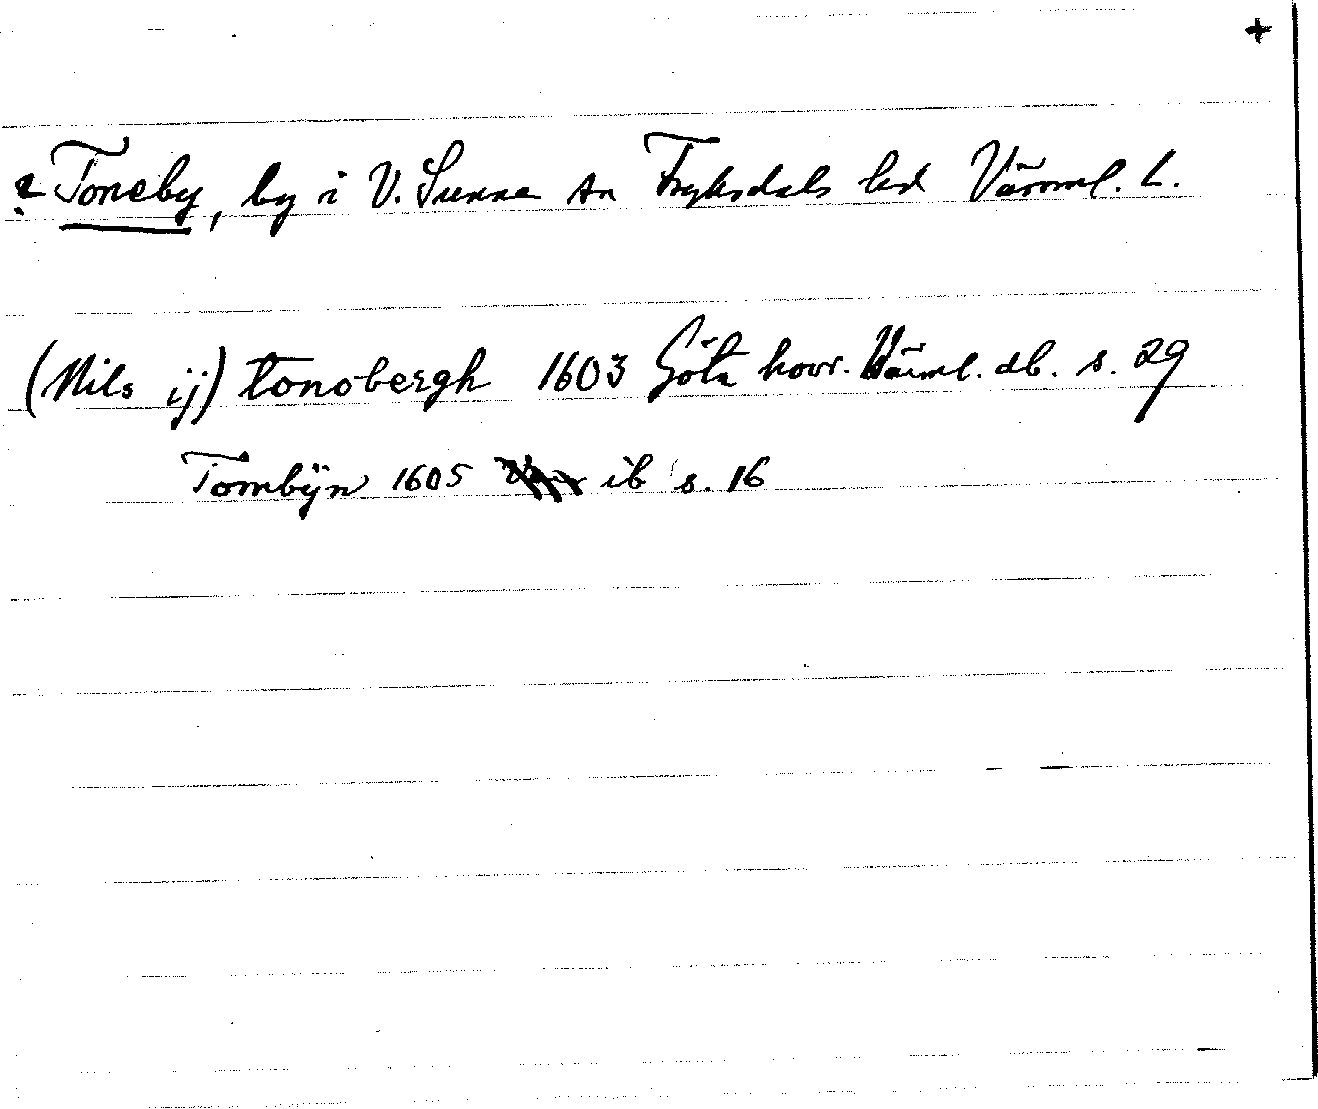 +
? Toneby, by i V. Sunne sn Fryksdals hd Värml. L.
(Nils ij) tonobergh 1603 Göta hovr. Värml. db. s. 29
Tombÿn 1605 ib s. 16